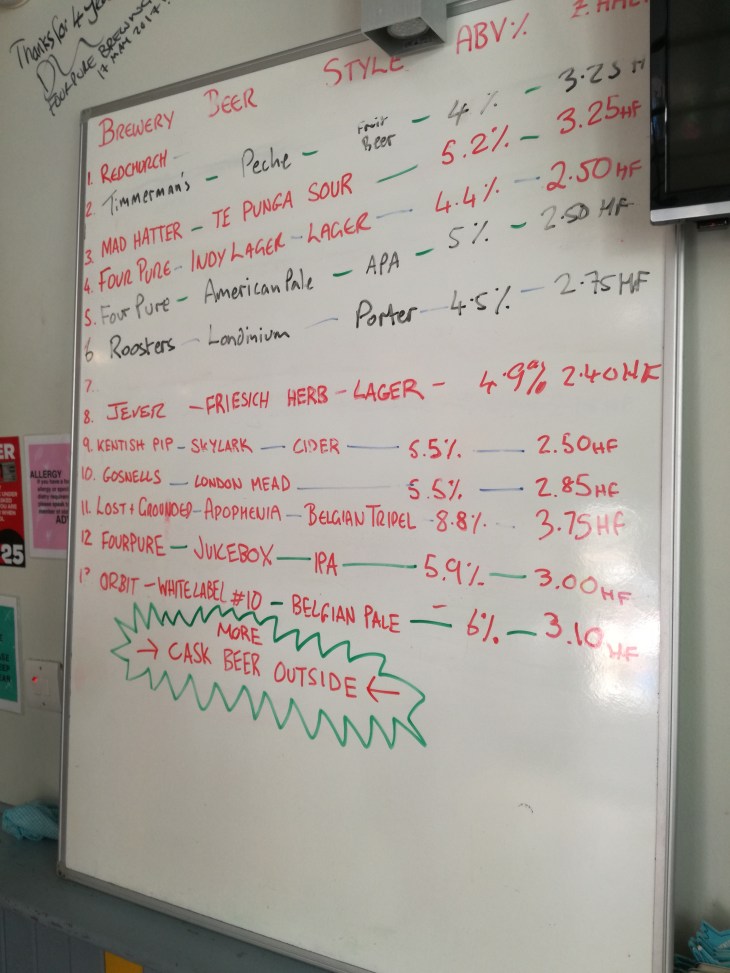 Thanks for 4 years
FOURPURE BREWING
17 MAY 2017!
BREWERY BEER STYLE ABV%
1. REDCHURCH -
2. Timmerman's - Peche - Fruit Beer - 4% - 3.25 H
3. MAD HATTER - TE PUNGA SOUR — 5.2% - 3.25HF
4. FOUR PURE - INDY LAGER - LAGER — 4.4% — 2.50 HF
5. Four Pure - American Pale - APA - 5% - 2.50 HF
6 Roosters - Londinium — Porter - 4.5% — 2.75 HF
7.
8. JEVER - FRIESICH HERB - LAGER - 4.9% 2.40HF
9. KENTISH PIP - SKYLARK — CIDER — 5.5% — 2.50HF
10. GOSNELLS — LONDON MEAD — 5.5% — 2.85HF
11. LOST + GROUNDED - APOPHENIA - BELGIAN TRIPEL - 8.8% - 3.75HF
12 FOURPURE - JUKEBOX — IPA — 5.9% — 3.00HF
13 ORBIT - WHITE LABEL #10 - BELGIAN PALE — 6% - 3.10HF
MORE
→ CASK BEER OUTSIDE ←
ALLERGY
25